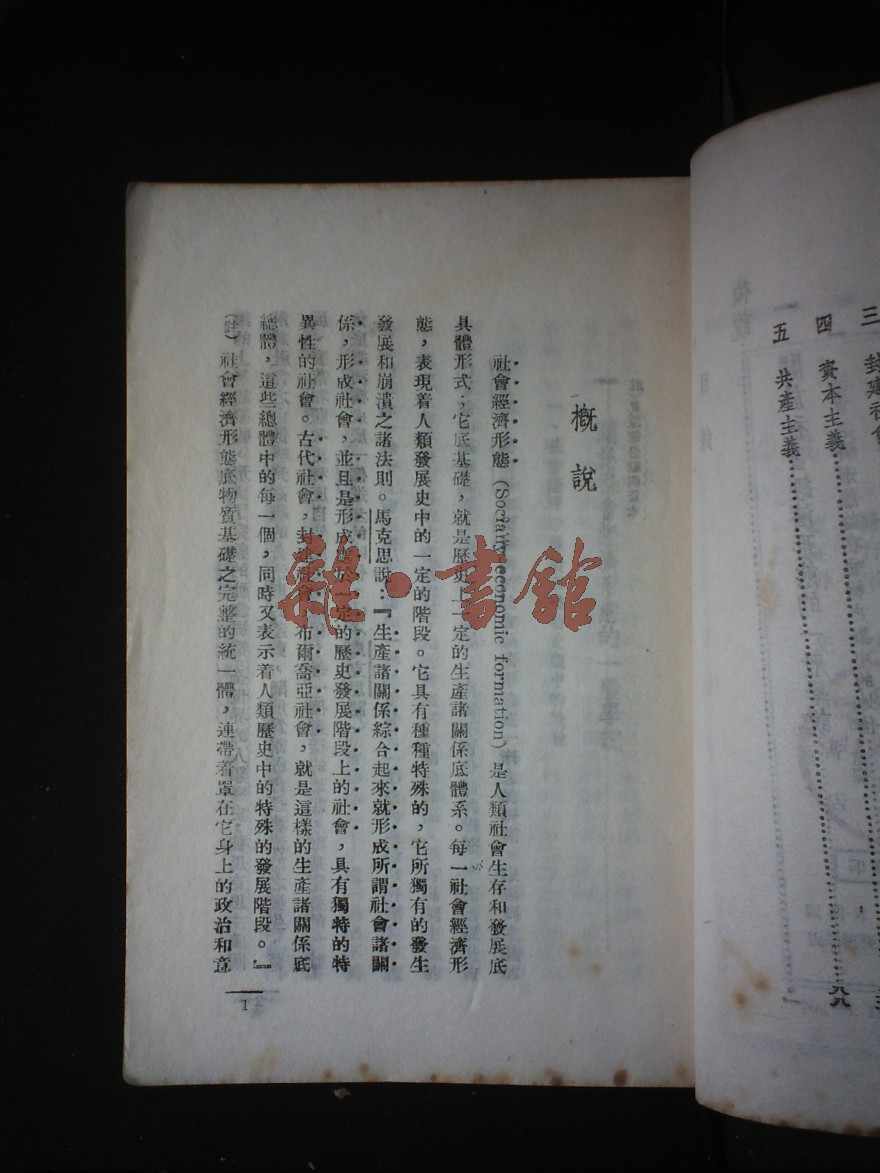 三 封建社會
四 資本主義……八八
五 共產主義……
概說
社會經濟形態(Socially economic formation)是人類社會生存和發展底
具體形式；它底基礎，就是歷史上一定的生產諸關係底體系。每一社會經濟形
態，表現着人類發展史中的一定的階段。它具有種種特殊的，它所獨有的發生
發展和崩潰之諸法則。馬克思說：『生產諸關係綜合起來就形成所謂社會諸關
係，形成社會，並且是形成處於一定的歷史發展階段上的社會，具有獨特的特
異性的社會。古代社會，封建社會，布爾喬亞社會，就是這樣的生產諸關係底
總體，這些總體中的每一個，同時又表示着人類歷史中的特殊的發展階段。』
(註)社會經濟形態底物質基礎之完整的統一體，連帶着罩在它身上的政治和意
1
雜·書館